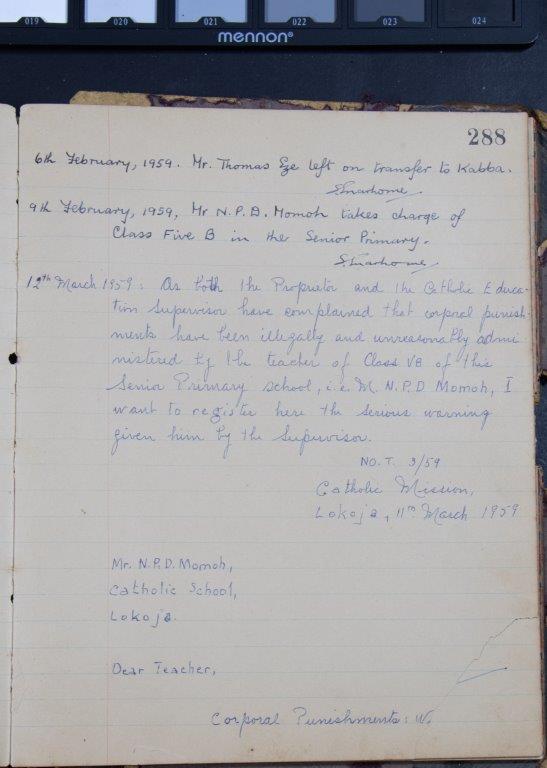 019 020 021 022 023 024
mennon®
288
6th February, 1959. Mr. Thomas Eze left on transfer to Kabba.
9th February, 1959, Mr N.P.D. Momoh takes charge of
Class Five B in the Senior Primary.
12th March 1959: As both the Proprietor and the Catholic Educa-
tion Supervisor have complained that corporal punish-
ments have been illegally and unreasonably admi-
nistered by the teacher of Class VB of this
Senior Primary school, i.e. M. N.P.D Momoh, I
want to register here the serious warning
given him by the Supervisor.
NO. T. 3/59
Catholic Mission,
Lokoja, 11th March 1959
Mr. N.P.D. Momoh,
Catholic School,
Lokoja.
Dear Teacher,
Corporal Punishments: W.